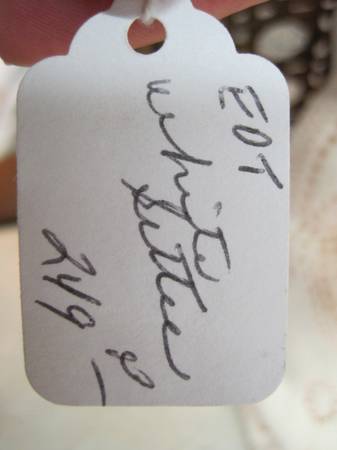 EDT
white
Settee
249 00